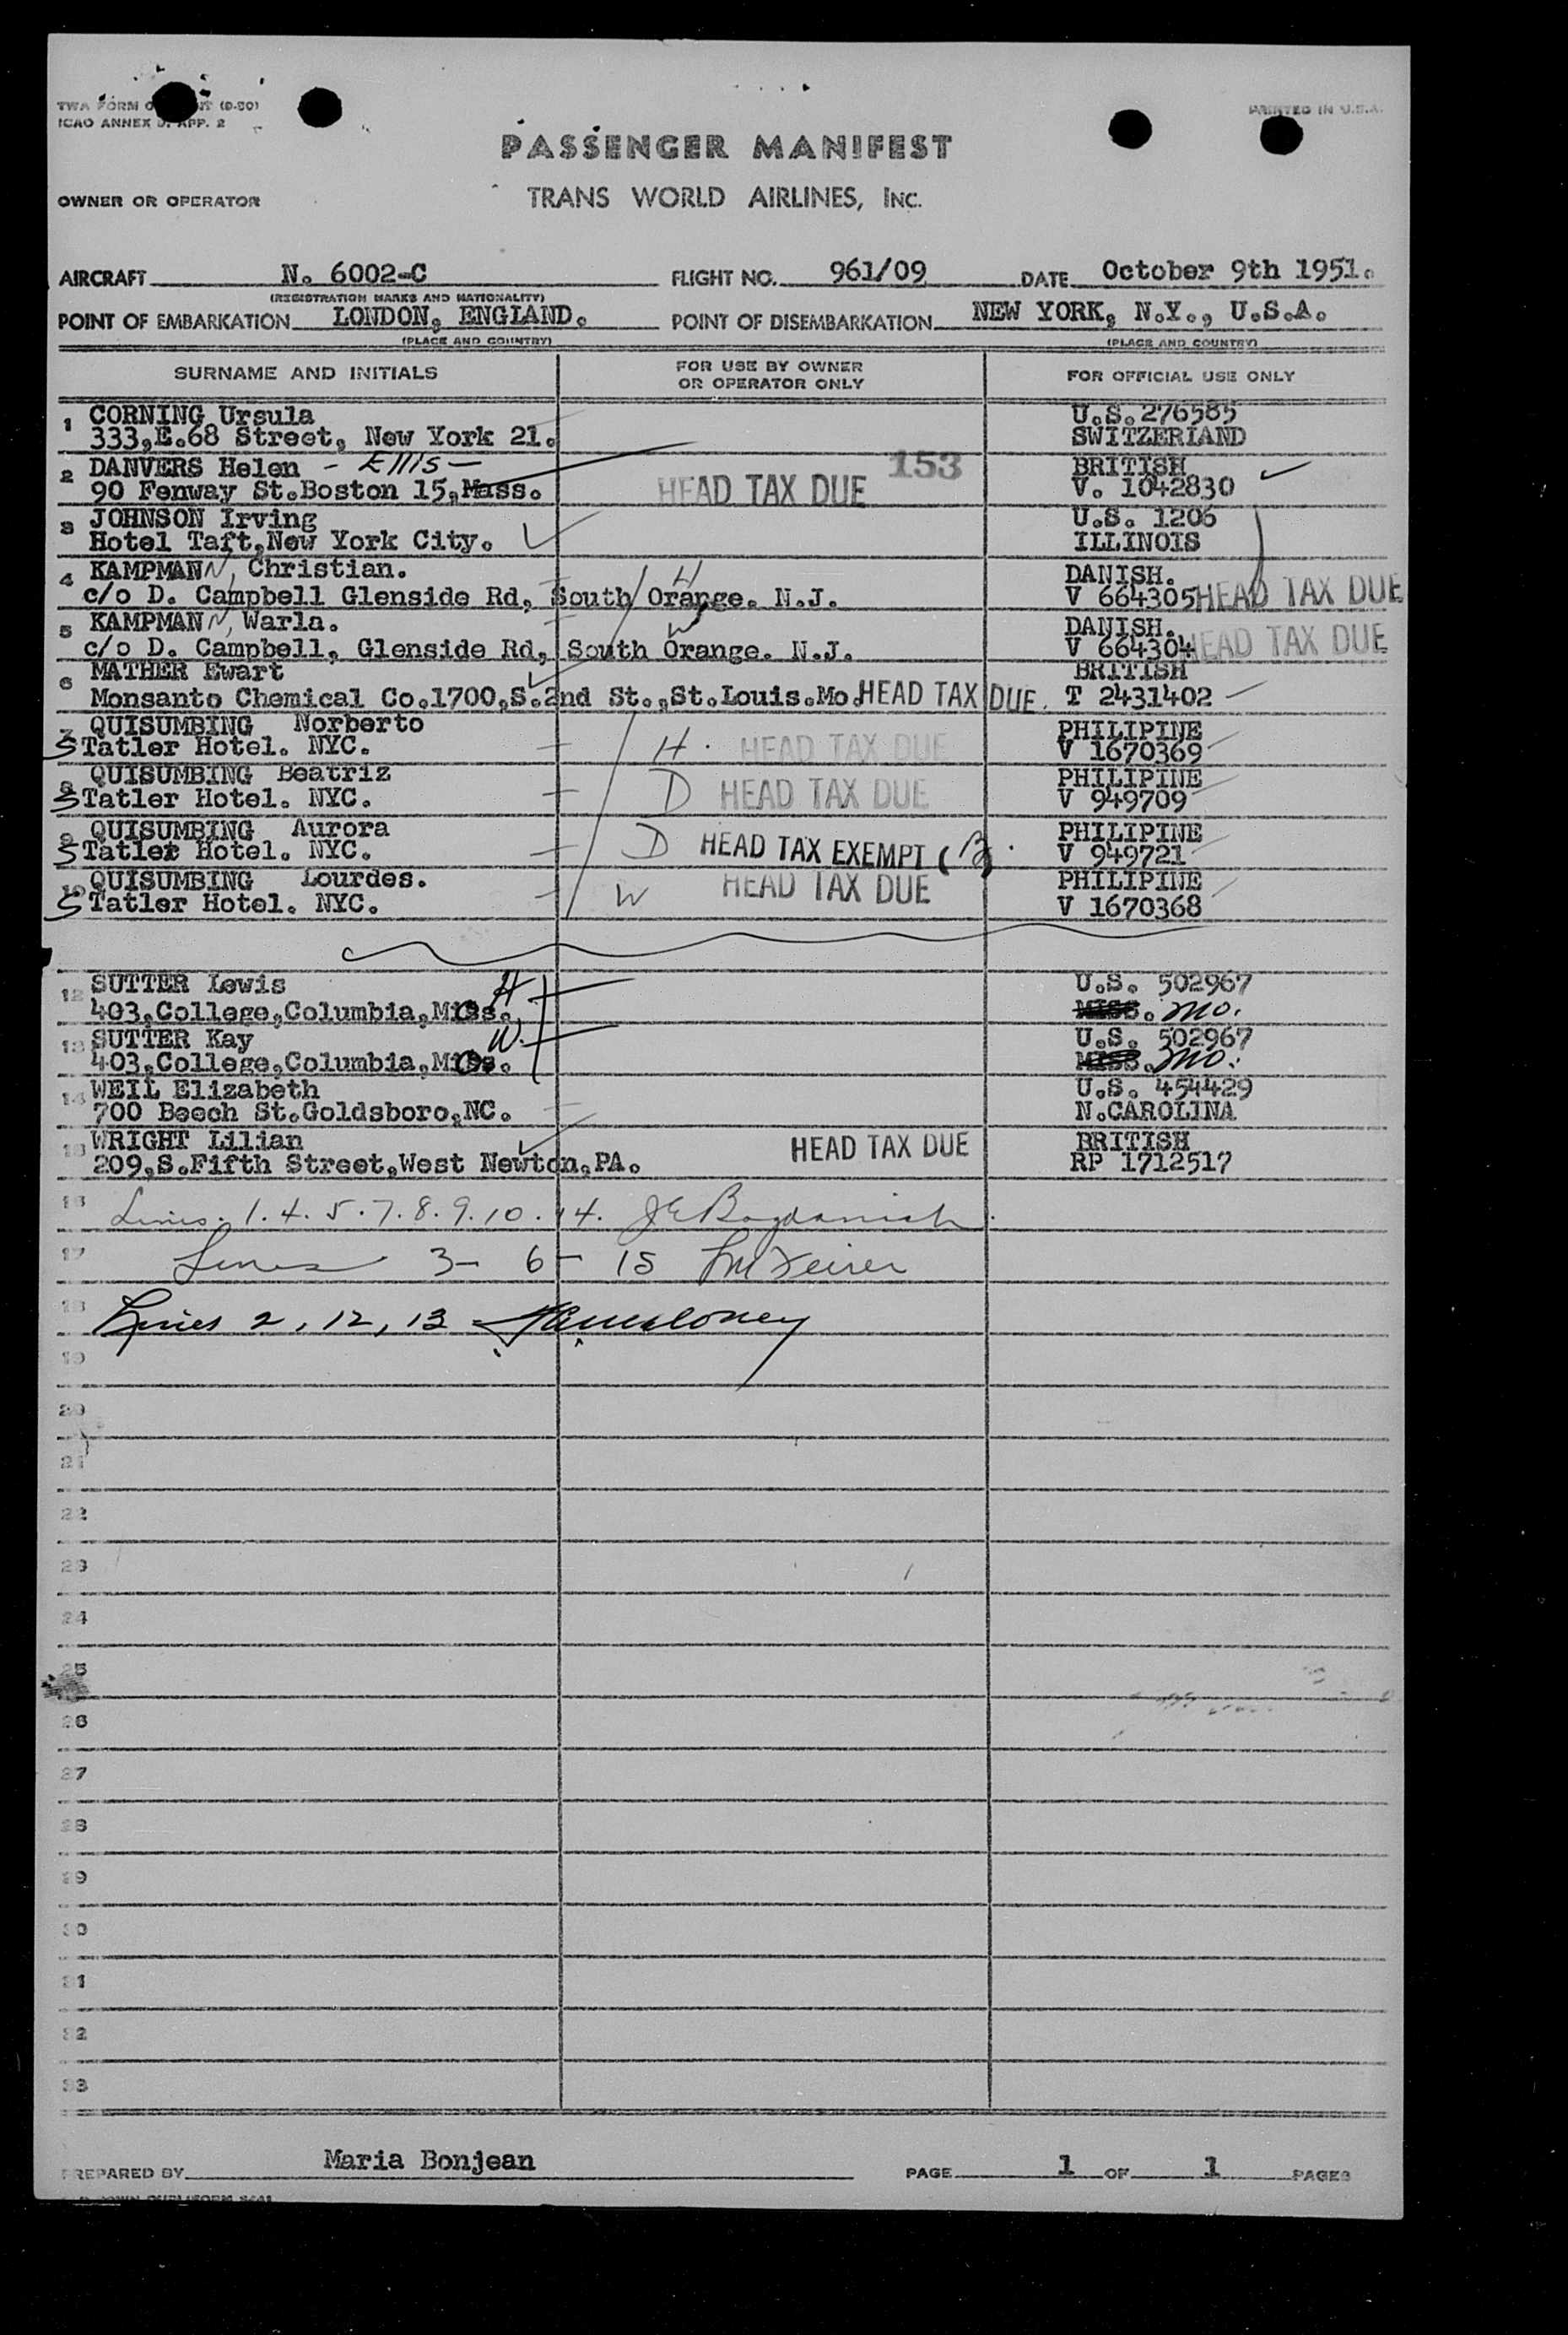 TWA FORM (9-50)
ICAO ANNEX 9. APP. 2
PRINTED IN U.S.A.
PASSENGER MANIFEST
OWNER OR OPERATOR TRANS WORLD AIRLINES, INC.
AIRCRAFT N. 6002-C FLIGHT NO. 961/09 DATE October 9th 1951.
(REGISTRATION MARKS AND NATIONALITY)
POINT OF EMBARKATION LONDON, ENGLAND. POINT OF DISEMBARKATION NEW YORK, N.Y., U.S.A.
(PLACE AND COUNTRY) (PLACE AND COUNTRY)
SURNAME AND INITIALS FOR USE BY OWNER OR OPERATOR ONLY FOR OFFICIAL USE ONLY
1 CORNING Ursula U.S. 276585
333,E.68 Street, New York 21. SWITZERLAND
2 DANVERS Helen - Ellis - 153 BRITISH
90 Fenway St.Boston 15,Mass. HEAD TAX DUE V. 1042830
3 JOHNSON Irving U.S. 1206
Hotel Taft,New York City. ILLINOIS
4 KAMPMANN, Christian. H DANISH.
c/o D. Campbell Glenside Rd, South Orange. N.J. V 664305 HEAD TAX DUE
5 KAMPMANN, Warla. W DANISH.
c/o D. Campbell, Glenside Rd, South Orange. N.J. V 664304 HEAD TAX DUE
6 MATHER Ewart BRITISH
Monsanto Chemical Co.1700,S.2nd St.,St.Louis.Mo. HEAD TAX DUE. T 2431402
7 QUISUMBING Norberto PHILIPINE
STatler Hotel. NYC. H. HEAD TAX DUE V 1670369
8 QUISUMBING Beatriz PHILIPINE
STatler Hotel. NYC. D HEAD TAX DUE V 949709
9 QUISUMBING Aurora PHILIPINE
STatler Hotel. NYC. D HEAD TAX EXEMPT (B) V 949721
10 QUISUMBING Lourdes. PHILIPINE
STatler Hotel. NYC. W HEAD TAX DUE V 1670368
12 SUTTER Lewis H U.S. 502967
403,College,Columbia,Mo. Miss. Mo.
13 SUTTER Kay W. U.S. 502967
403,College,Columbia,Mo. Miss. Mo.
14 WEIL Elizabeth U.S. 454429
700 Beech St.Goldsboro,NC. N.CAROLINA
15 WRIGHT Lilian HEAD TAX DUE BRITISH
209,S.Fifth Street,West Newton,PA. RP 1712517
16 Lines. 1. 4. 5. 7. 8. 9. 10. 14.
17 Lines 3- 6- 15
18 Lines 2, 12, 13
19
20
21
22
23
24
25
26
27
28
29
30
31
32
33
PREPARED BY Maria Bonjean PAGE 1 OF 1 PAGES